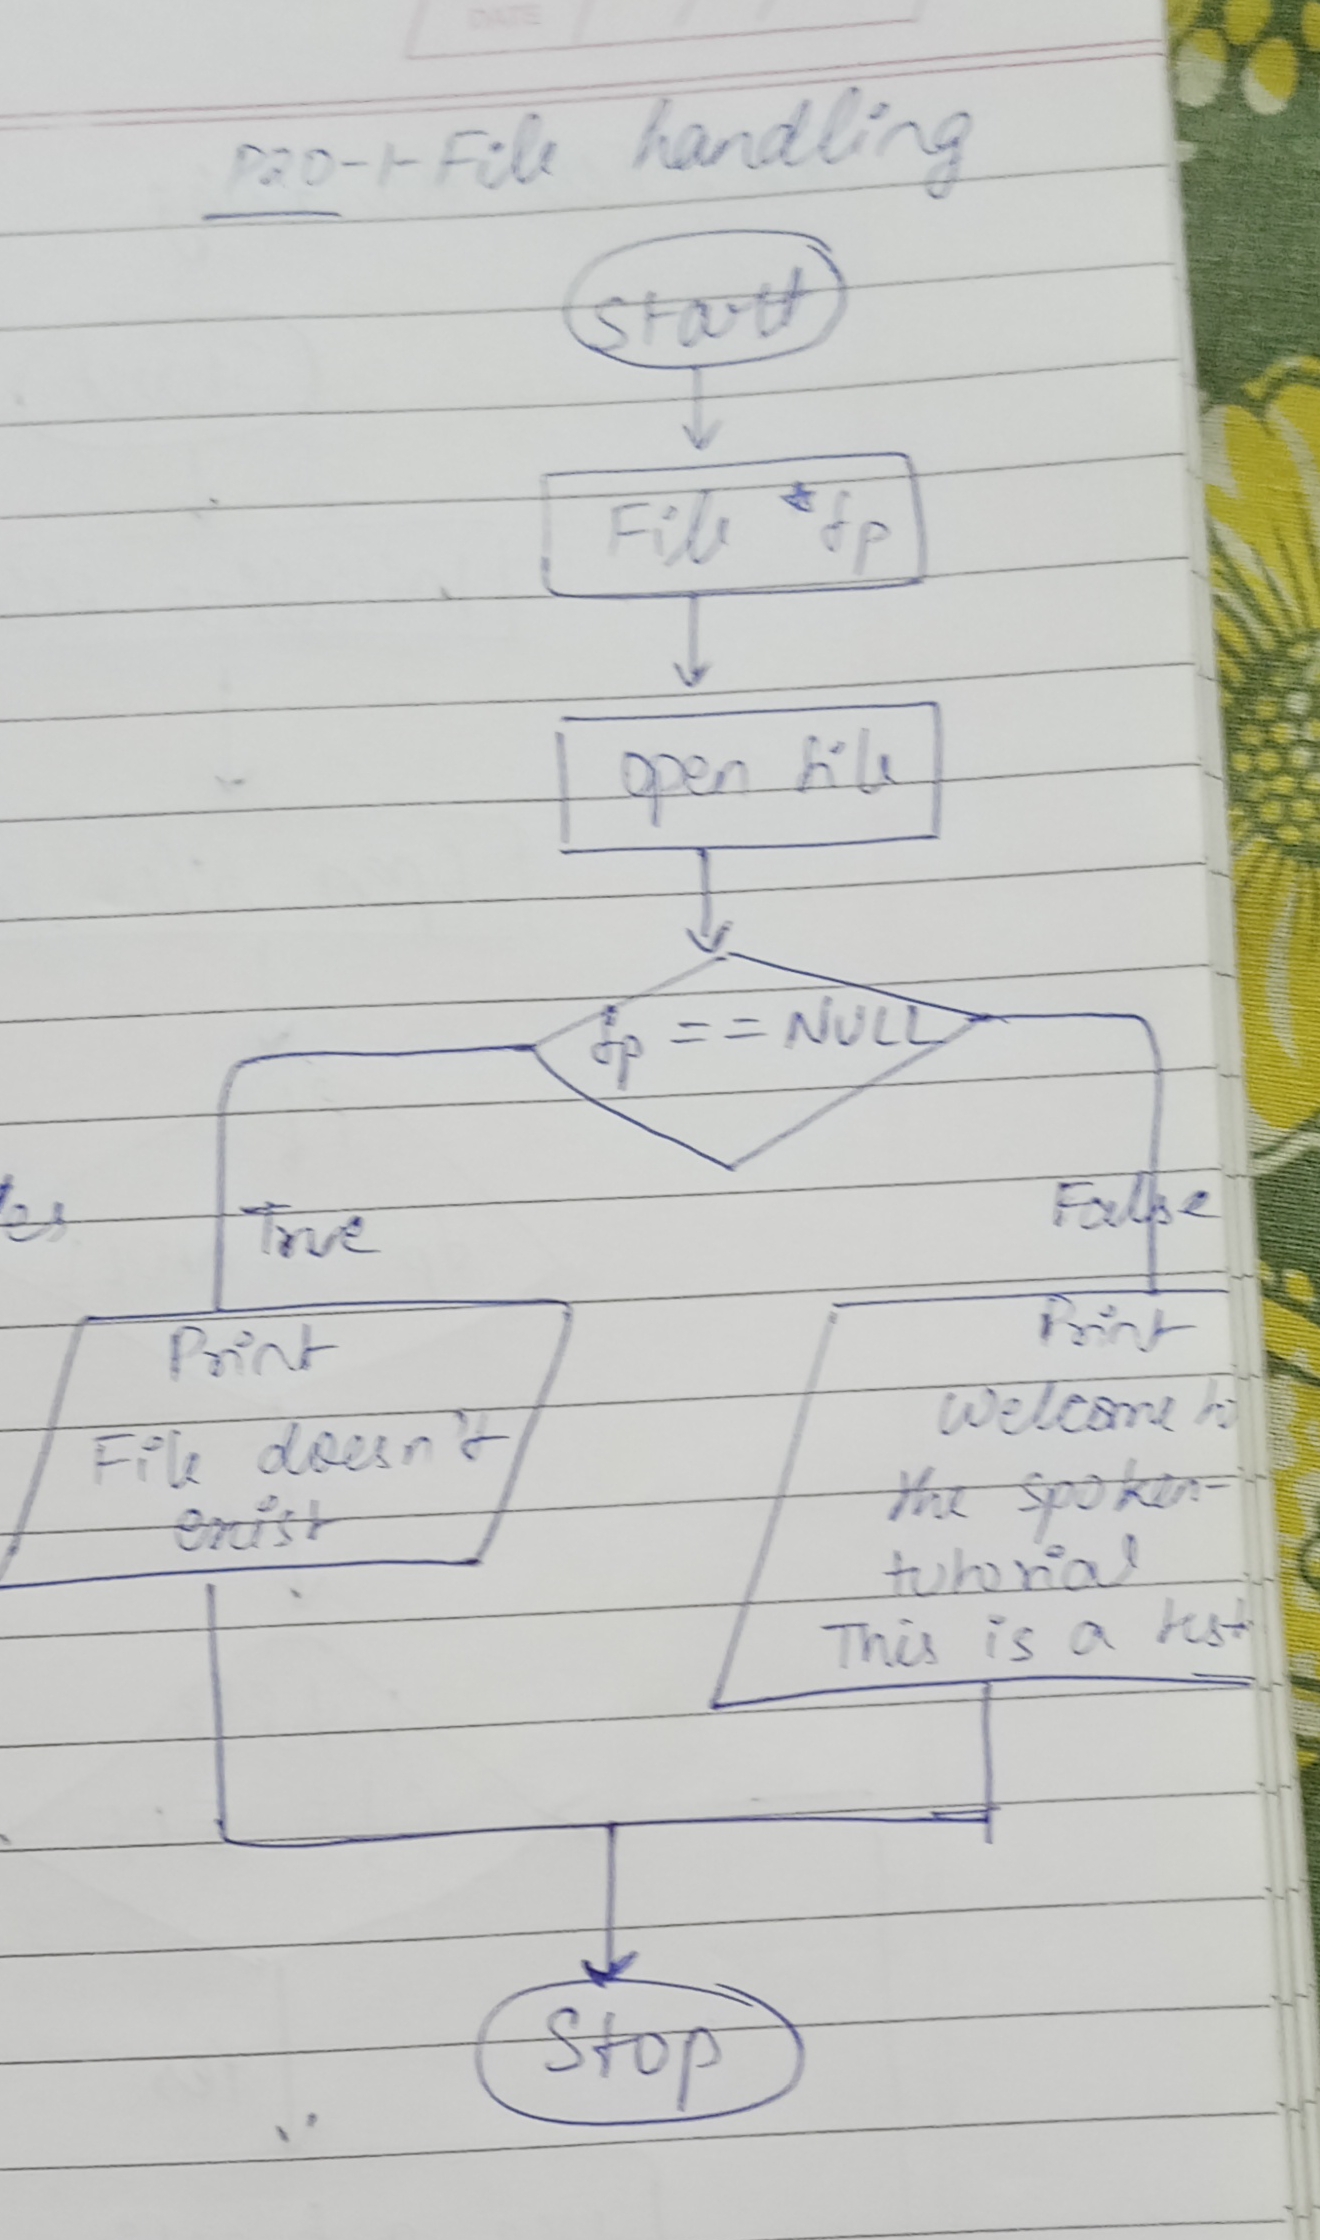 DATE
P20-1-File handling
Start
File *fp
open file
fp == NULL
True
False
Print
File doesn't
exist
Print
Welcome to
the spoken-
tutorial
This is a test
Stop